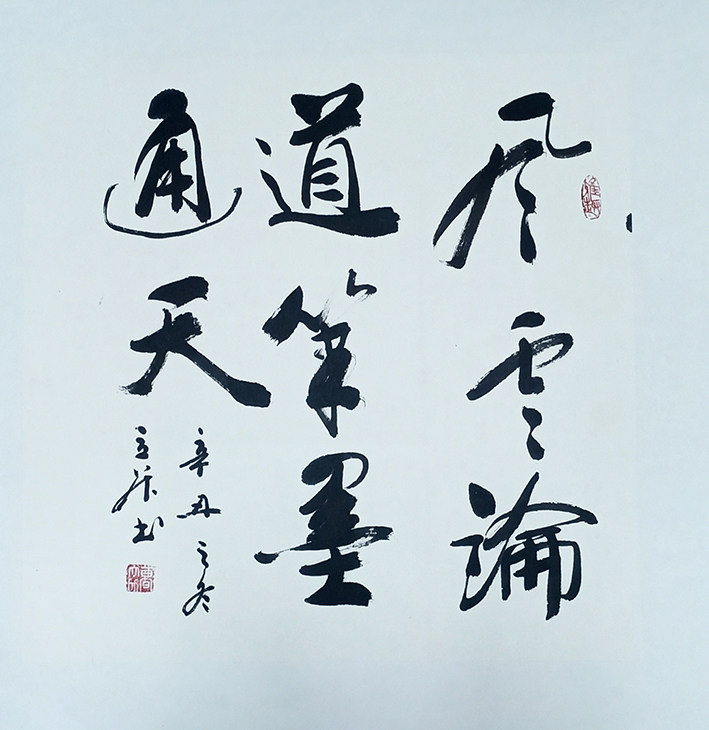 風雲論
道筆墨
通天
辛丑之冬
書